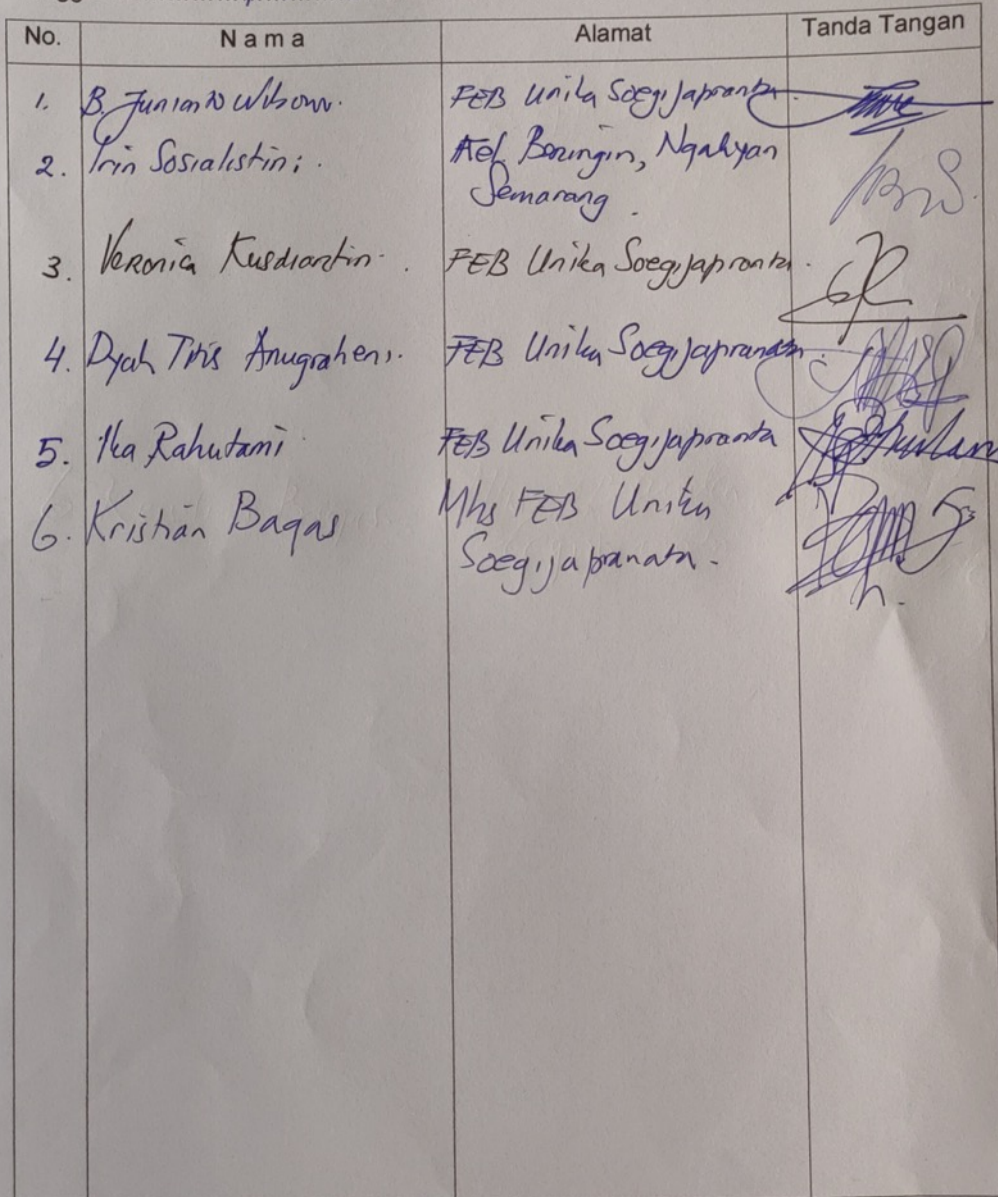 No. N a m a Alamat Tanda Tangan
1. B. Junianto Wibowo. FEB Unika Soegijapranata.
2. Irin Sosialistini. Kel. Beringin, Ngaliyan
Semarang.
3. Veronica Kusdiantin. FEB Unika Soegijapranata.
4. Dyah Titis Anugraheni. FEB Unika Soegijapranata.
5. Ika Rahutami FEB Unika Soegijapranata
6. Kristian Bagas Mhs FEB Unika
Soegijapranata.